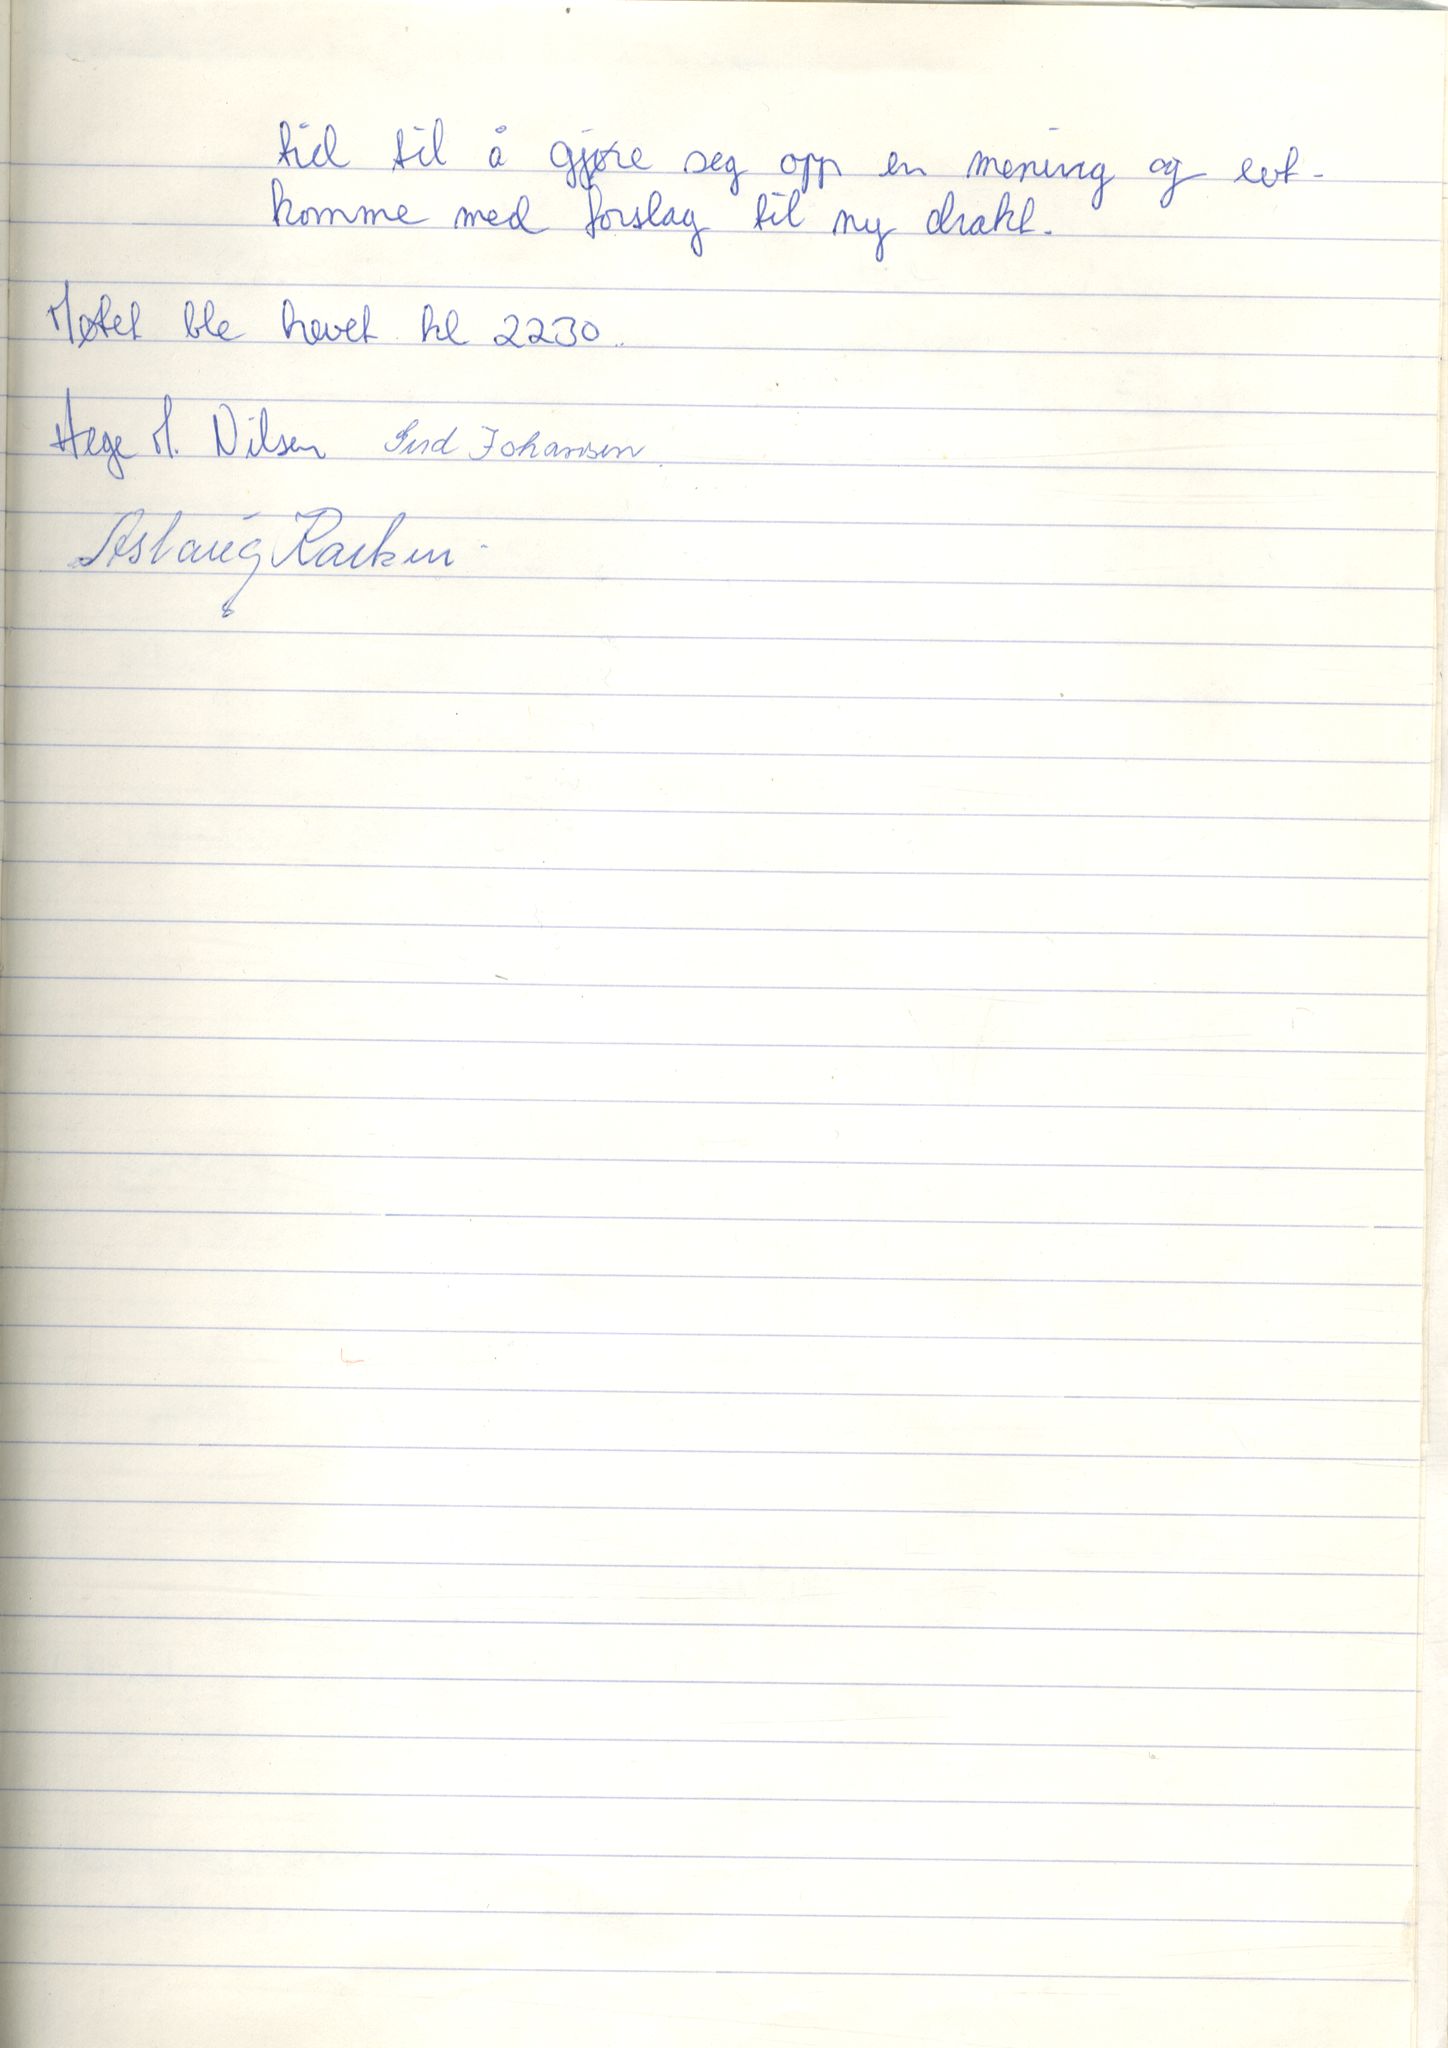 tid til å gjøre seg opp en mening og evt.
komme med forslag til ny drakt.
Møtet ble hevet kl 2230.
Hege M. Nilsen Gud Johansen
Aslaug